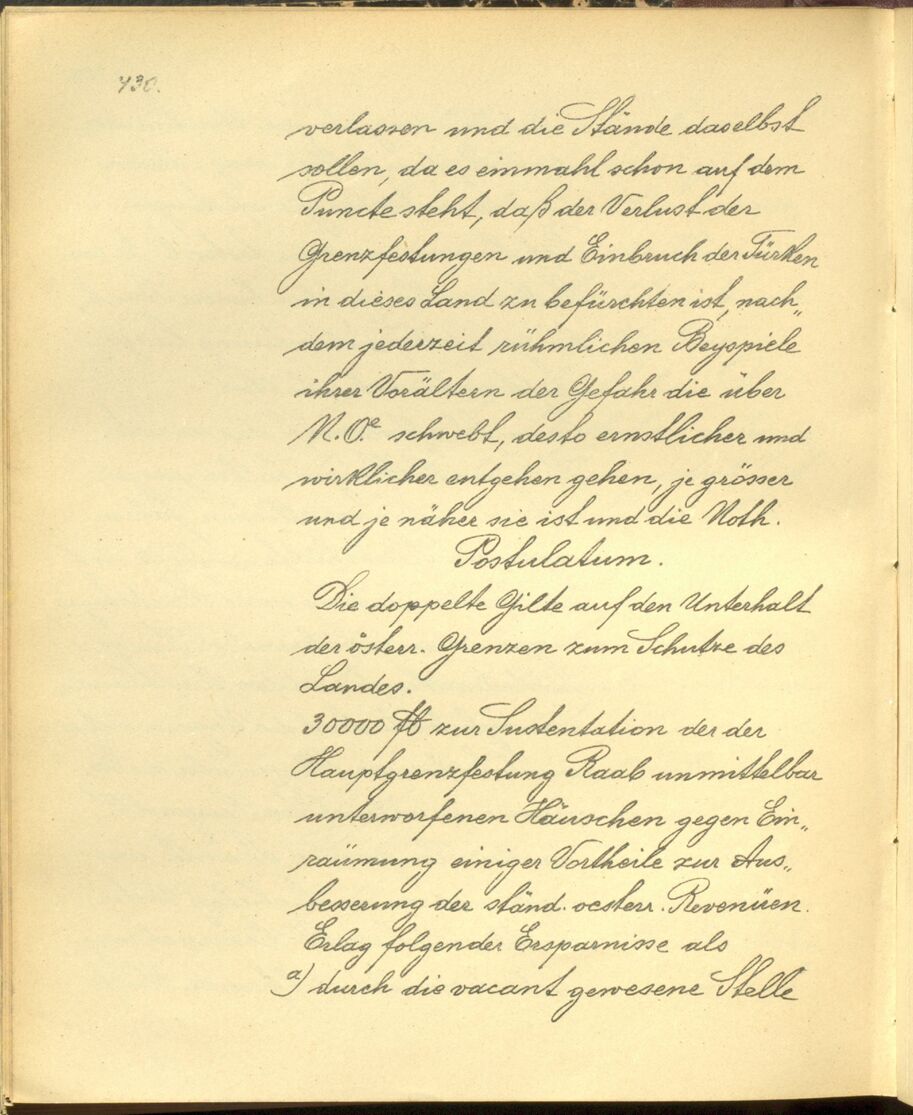 430.
verlassen und die Stände daselbst
sollen, da es einmahl schon auf dem
Puncte steht, daß der Verlust der
Grenzfestungen und Einbruch der Türken
in dieses Land zu befürchten ist, nach„
dem jederzeit rühmlichen Beyspiele
ihrer Vorältern der Gefahr die über
N. Oe schwebt, desto ernstlicher und
wirklicher entgehen gehen, je grösser
und je näher sie ist und die Noth.
Postulatum.
Die doppelte Gilte auf den Unterhalt
der österr. Grenzen zum Schutze des
Landes.
30000 fl zur Sustentation der der
Hauptgrenzfestung Raab unmittelbar
unterworfenen Häuschen gegen Ein„
räumung einiger Vortheile zur Aus„
besserung der ständ. oesterr. Revenüen.
Erlag folgender Ersparnisse als
a) durch die vacant gewesene Stelle